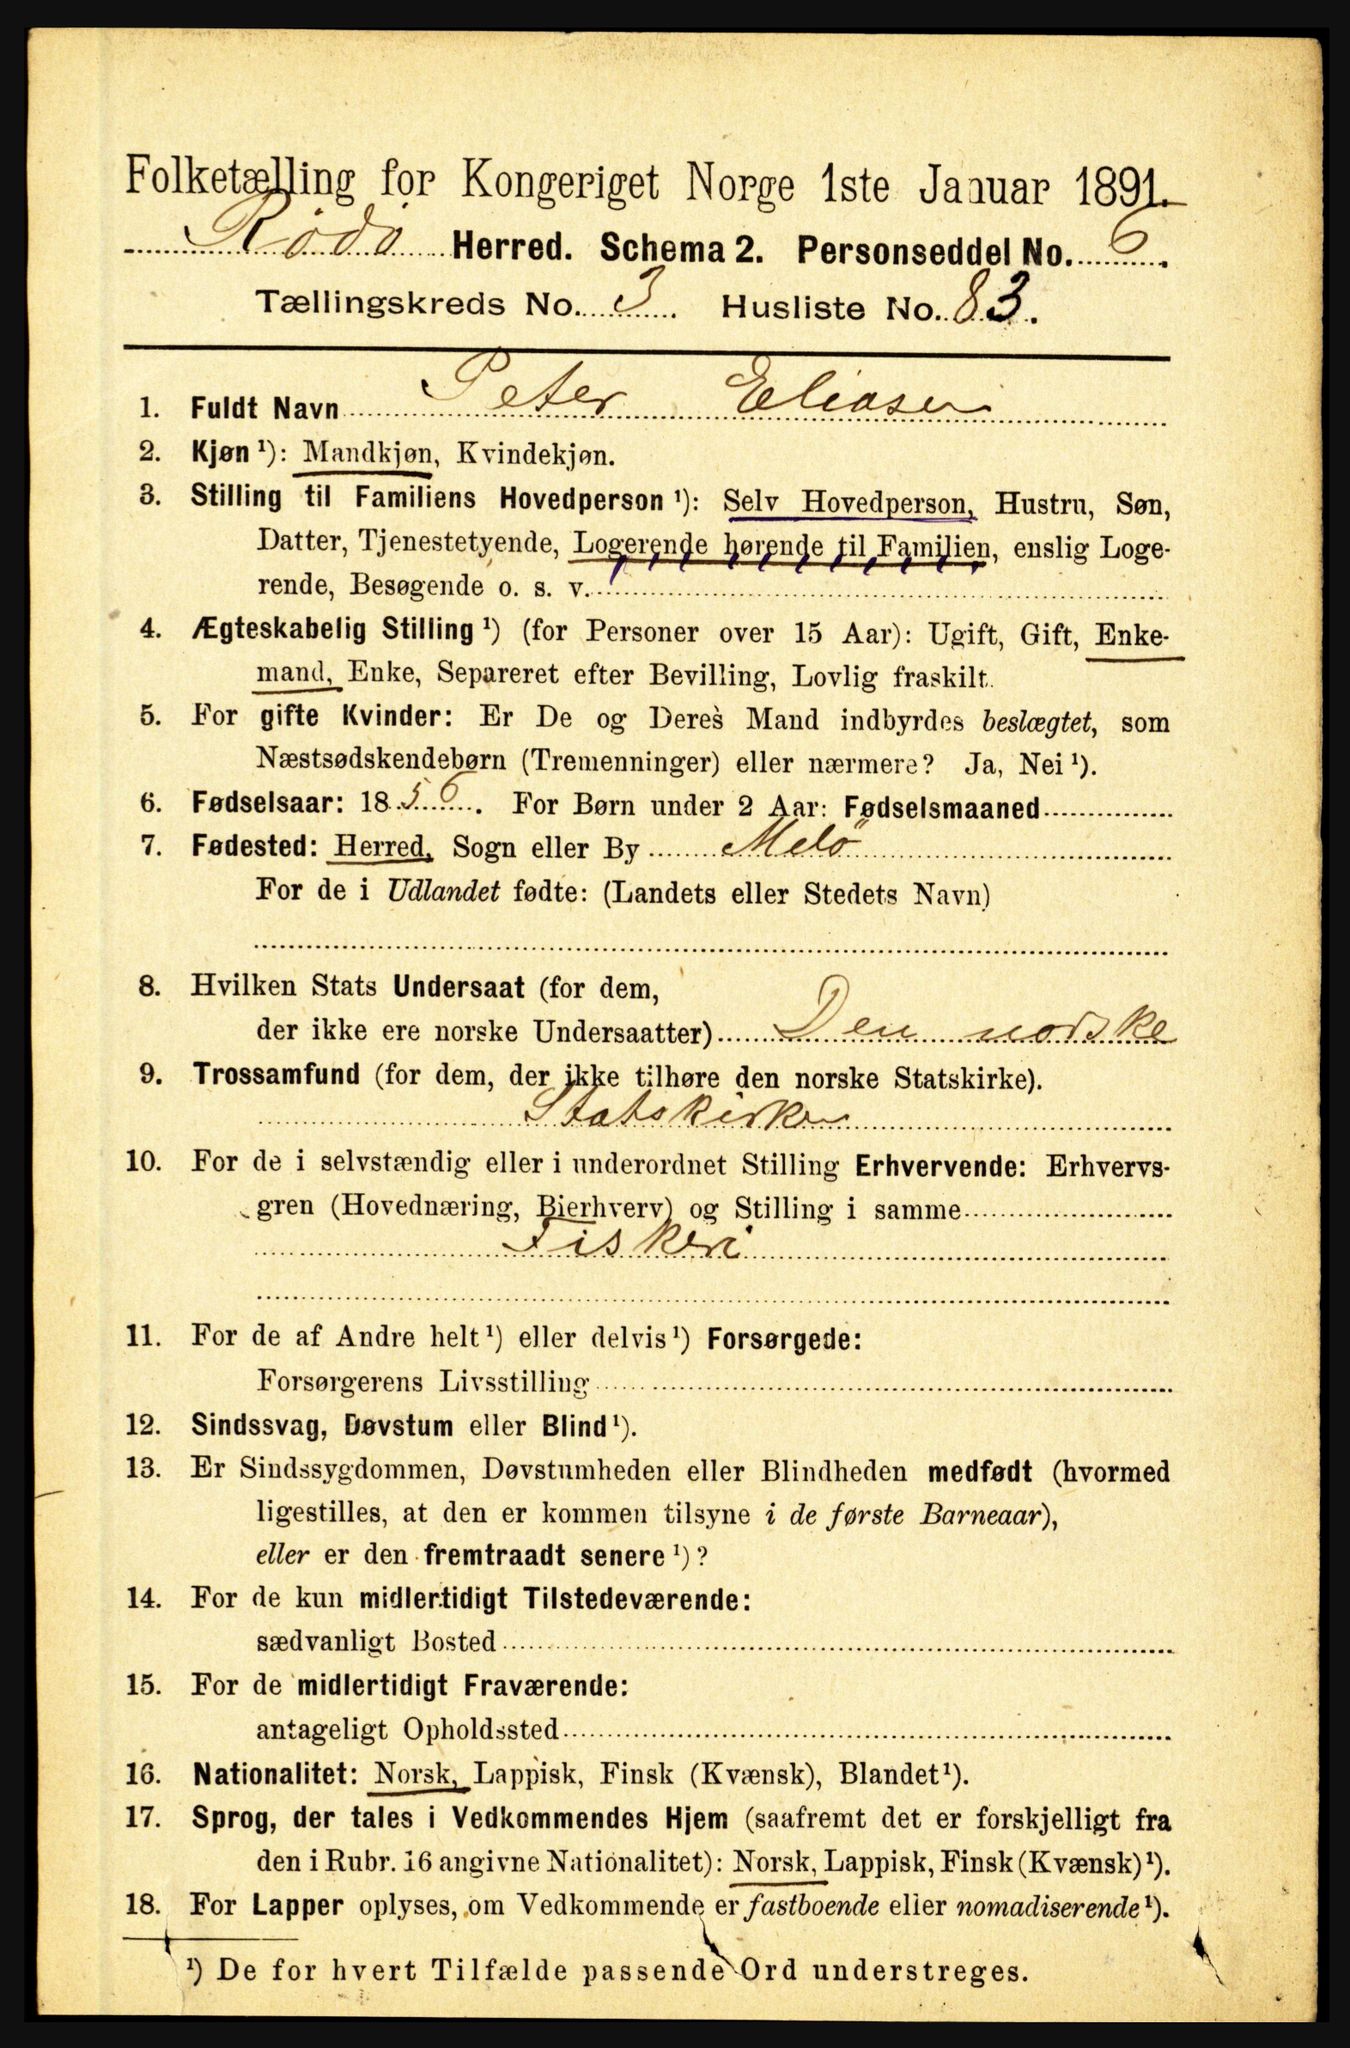 Folketælling for Kongeriget Norge 1ste Januar 1891.
Rödö Herred. Schema 2. Personseddel No. 6.
Tællingskreds No. 3. Husliste No. 83.
1. Fuldt Navn Peter Eliasen
2. Kjøn ¹): Mandkjøn, Kvindekjøn.
3. Stilling til Familiens Hovedperson ¹): Selv Hovedperson, Hustru, Søn,
Datter, Tjenestetyende, Logerende hørende til Familien, enslig Loge-
rende, Besøgende o. s. v.
4. Ægteskabelig Stilling ¹) (for Personer over 15 Aar): Ugift, Gift, Enke-
mand, Enke, Separeret efter Bevilling, Lovlig fraskilt.
5. For gifte Kvinder: Er De og Deres Mand indbyrdes beslægtet, som
Næstsødskendebørn (Tremenninger) eller nærmere? Ja, Nei ¹).
6. Fødselsaar: 1856. For Børn under 2 Aar: Fødselsmaaned
7. Fødested: Herred, Sogn eller By Melö
For de i Udlandet fødte: (Landets eller Stedets Navn)
8. Hvilken Stats Undersaat (for dem,
der ikke ere norske Undersaatter) Den norske
9. Trossamfund (for dem, der ikke tilhøre den norske Statskirke).
Statskirken
10. For de i selvstændig eller i underordnet Stilling Erhvervende: Erhvervs-
gren (Hovednæring, Bierhverv) og Stilling i samme
Fiskeri
11. For de af Andre helt ¹) eller delvis ¹) Forsørgede:
Forsørgerens Livsstilling
12. Sindssvag, Døvstum eller Blind ¹).
13. Er Sindssygdommen, Døvstumheden eller Blindheden medfødt (hvormed
ligestilles, at den er kommen tilsyne i de første Barneaar),
eller er den fremtraadt senere ¹)?
14. For de kun midlertidigt Tilstedeværende:
sædvanligt Bosted
15. For de midlertidigt Fraværende:
antageligt Opholdssted
16. Nationalitet: Norsk, Lappisk, Finsk (Kvænsk), Blandet ¹).
17. Sprog, der tales i Vedkommendes Hjem (saafremt det er forskjelligt fra
den i Rubr. 16 angivne Nationalitet): Norsk, Lappisk, Finsk (Kvænsk) ¹).
18. For Lapper oplyses, om Vedkommende er fastboende eller nomadiserende ¹).
¹) De for hvert Tilfælde passende Ord understreges.